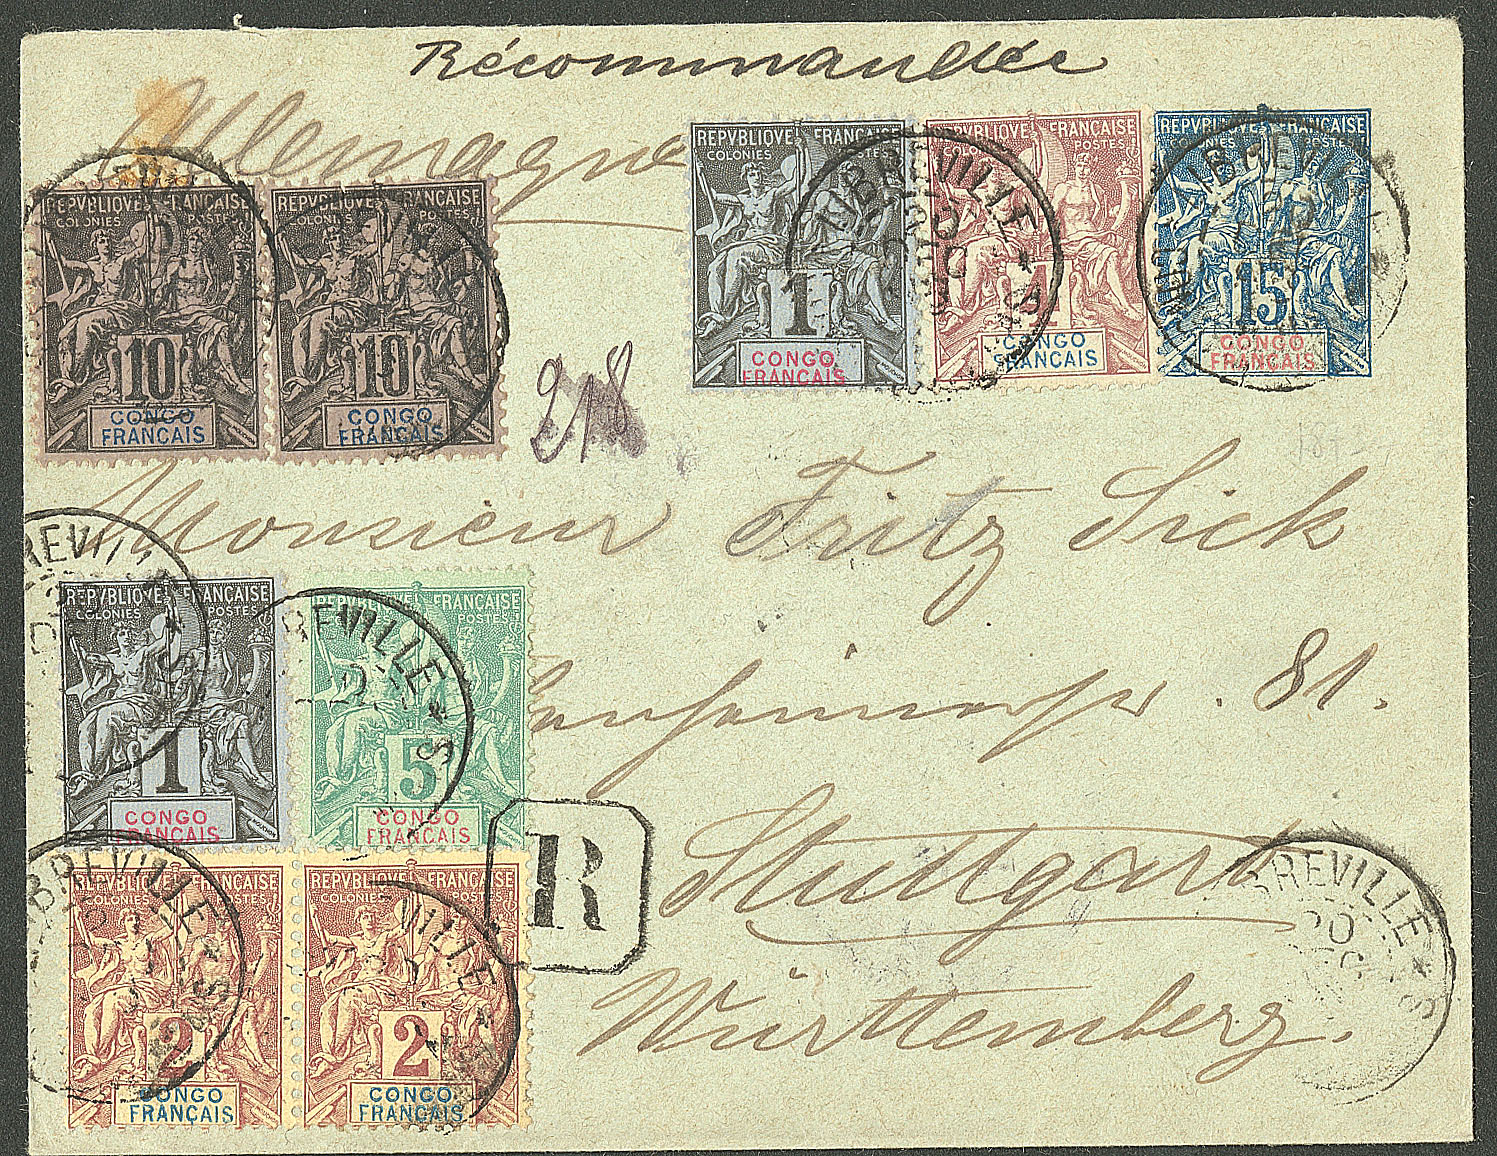 Récommandée
Allemagne
REPVBLIQVE FRANÇAISE
COLONIES POSTES
1
CONGO
FRANÇAIS
REPVBLIQVE FRANÇAISE
COLONIES POSTES
4
CONGO
FRANÇAIS
REPVBLIQVE FRANÇAISE
COLONIES POSTES
15
CONGO
FRANÇAIS
LIBREVILLE *
REPVBLIQVE FRANÇAISE
COLONIES POSTES
10
CONGO
FRANÇAIS
REPVBLIQVE FRANÇAISE
COLONIES POSTES
10
CONGO
FRANÇAIS
218
Monsieur Fritz Sick
81.
Stuttgart
Württemberg.
REVILLE
REPVBLIQVE FRANÇAISE
COLONIES POSTES
1
CONGO
FRANÇAIS
REPVBLIQVE FRANÇAISE
COLONIES POSTES
5
CONGO
FRANÇAIS
REVILLE *
R
REPVBLIQVE FRANÇAISE
COLONIES POSTES
2
CONGO
FRANÇAIS
REPVBLIQVE FRANÇAISE
COLONIES POSTES
2
CONGO
FRANÇAIS
BREVILLE *
VILLE *
BREVILLE *
20